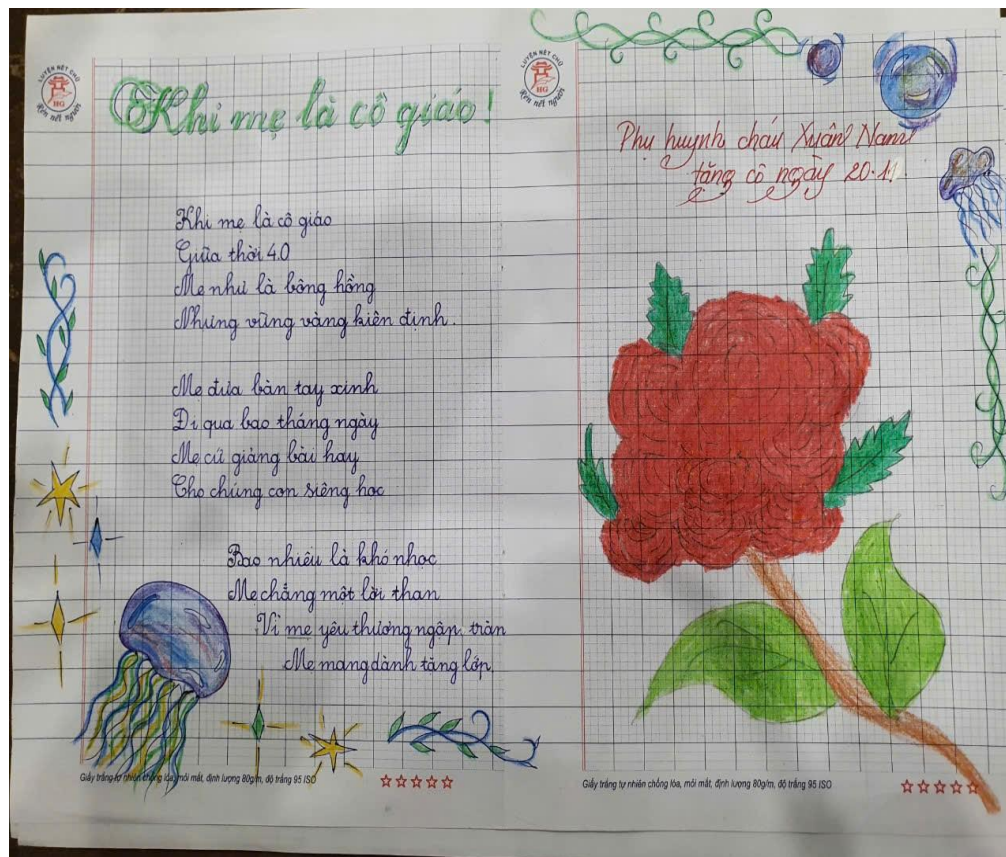 LUYỆN NÉT CHỮ
HG
Rèn nết người
Khi mẹ là cô giáo!
Khi mẹ là cô giáo
Giữa thời 4.0
Mẹ như là bông hồng
Nhưng vững vàng kiên định.
Mẹ đưa bàn tay xinh
Đi qua bao tháng ngày
Mẹ cứ giảng bài hay
Cho chúng con siêng học
Bao nhiêu là khó nhọc
Mẹ chẳng một lời than
Vì mẹ yêu thương ngập tràn
Mẹ mang dành tặng lớp.
Giấy trắng tự nhiên chống lóa, mỏi mắt, định lượng 80g/m, độ trắng 95 ISO
LUYỆN NÉT CHỮ
HG
Rèn nết người
Phụ huynh cháu Xuân Nam
tặng cô ngày 20.11
Giấy trắng tự nhiên chống lóa, mỏi mắt, định lượng 80g/m, độ trắng 95 ISO